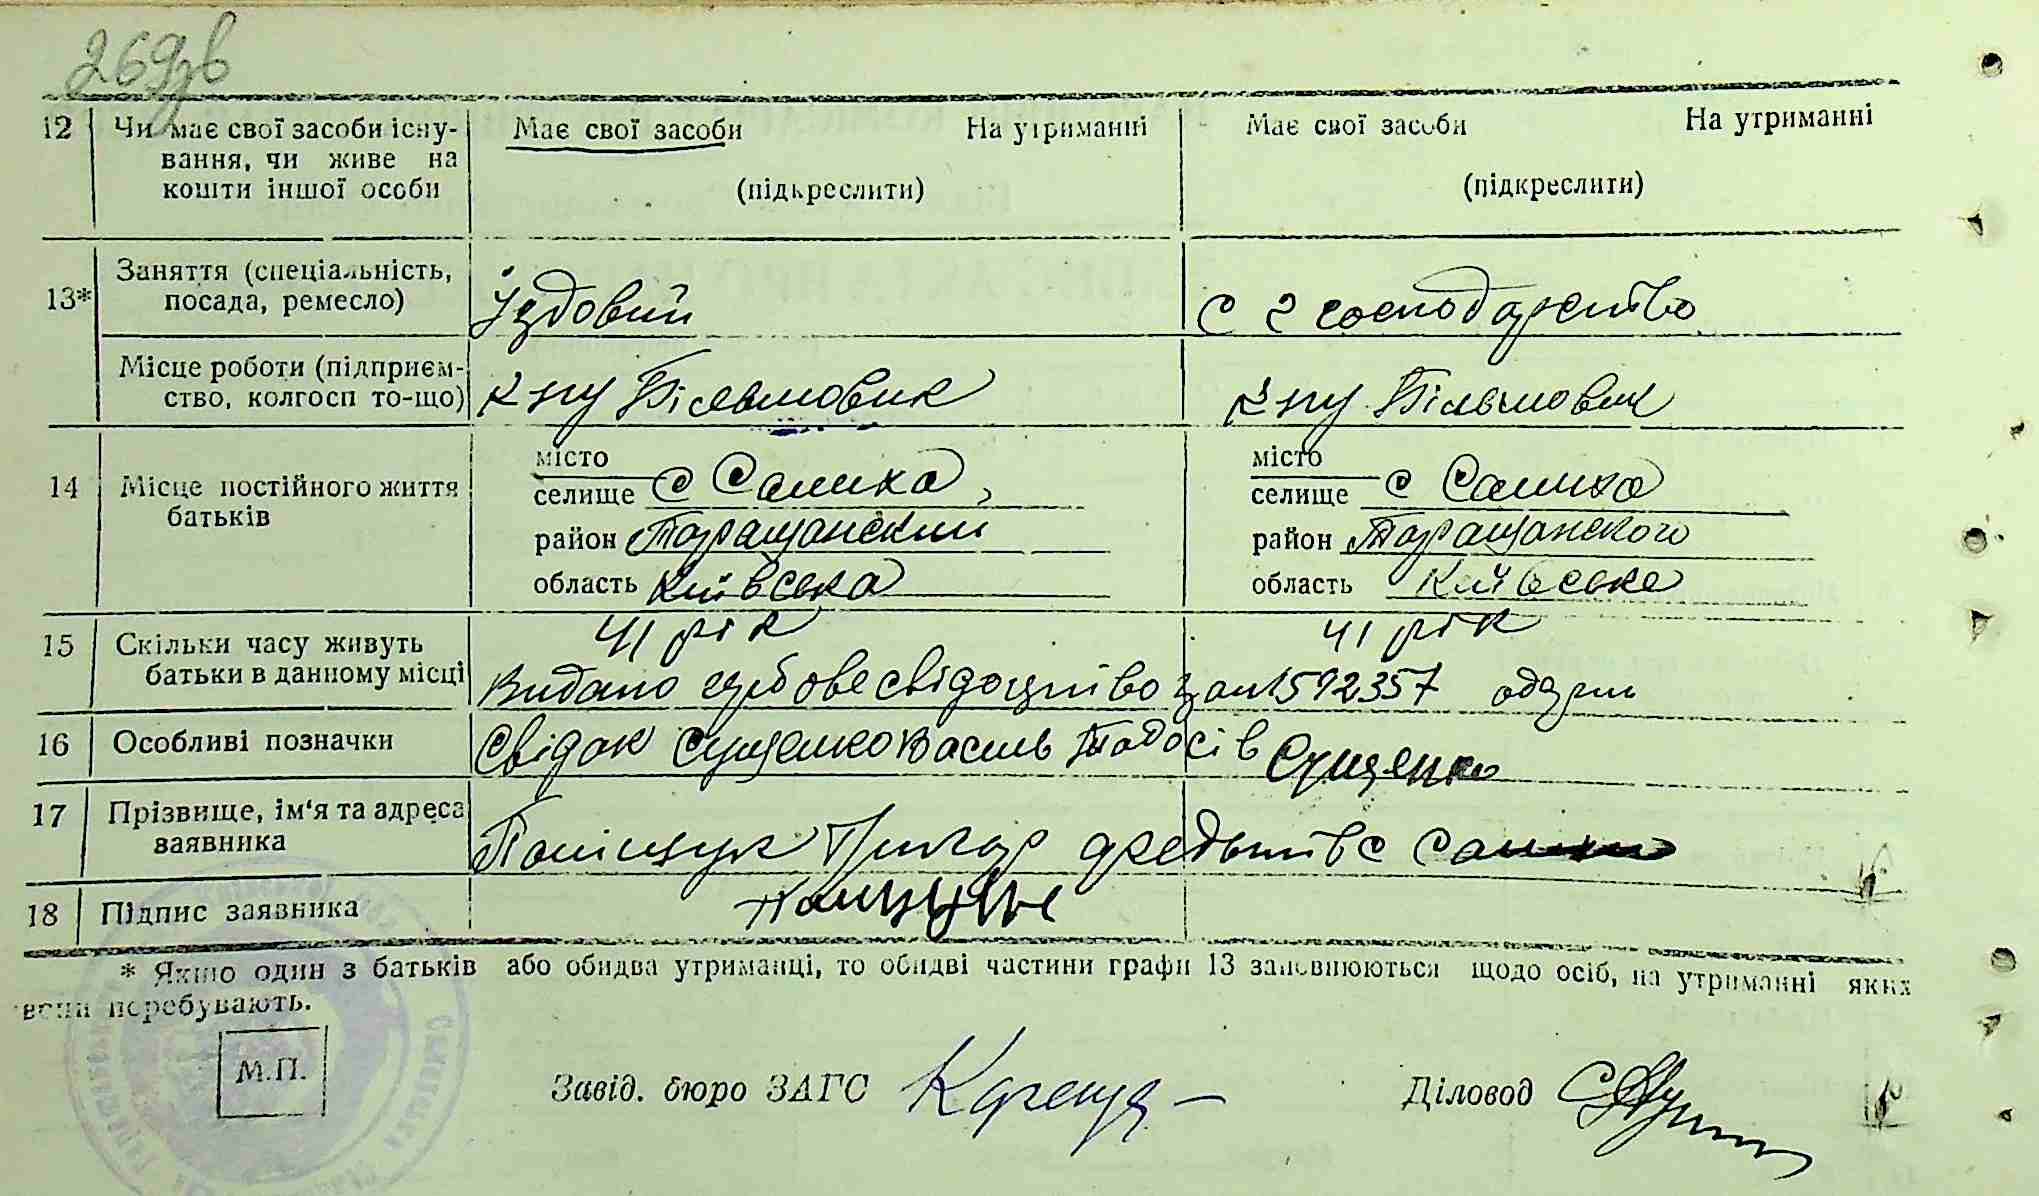 269зв
12 Чи має свої засоби існу- Має свої засоби На утриманні Має свої засоби На утриманні
вання, чи живе на
кошти іншої особи (підкреслити) (підкреслити)
Заняття (спеціальність,
13* посада, ремесло) Їздовий с г господарство
Місце роботи (підприєм-
ство, колгосп то-що) к-зпу Більшовик к-зпу Більшовик
місто місто
14 Місце постійного життя селище с Салиха селище с Салиха
батьків
район Таращанский район Таращанского
область Київська область Київське
15 Скільки часу живуть 41 рік 41 рік
батьки в данному місці Видано свідоцтво 592357
16 Особливі позначки Свідок Сущенко Василь Тодосів Сущенко
17 Прізвище, ім'я та адреса
заявника Поліщук с Салиха
18 Підпис заявника
* Якщо один з батьків або обидва утриманці, то обидві частини графи 13 заповнюються щодо осіб, на утриманні яких
вони перебувають.
М.П.
Завід. бюро ЗАГС Діловод